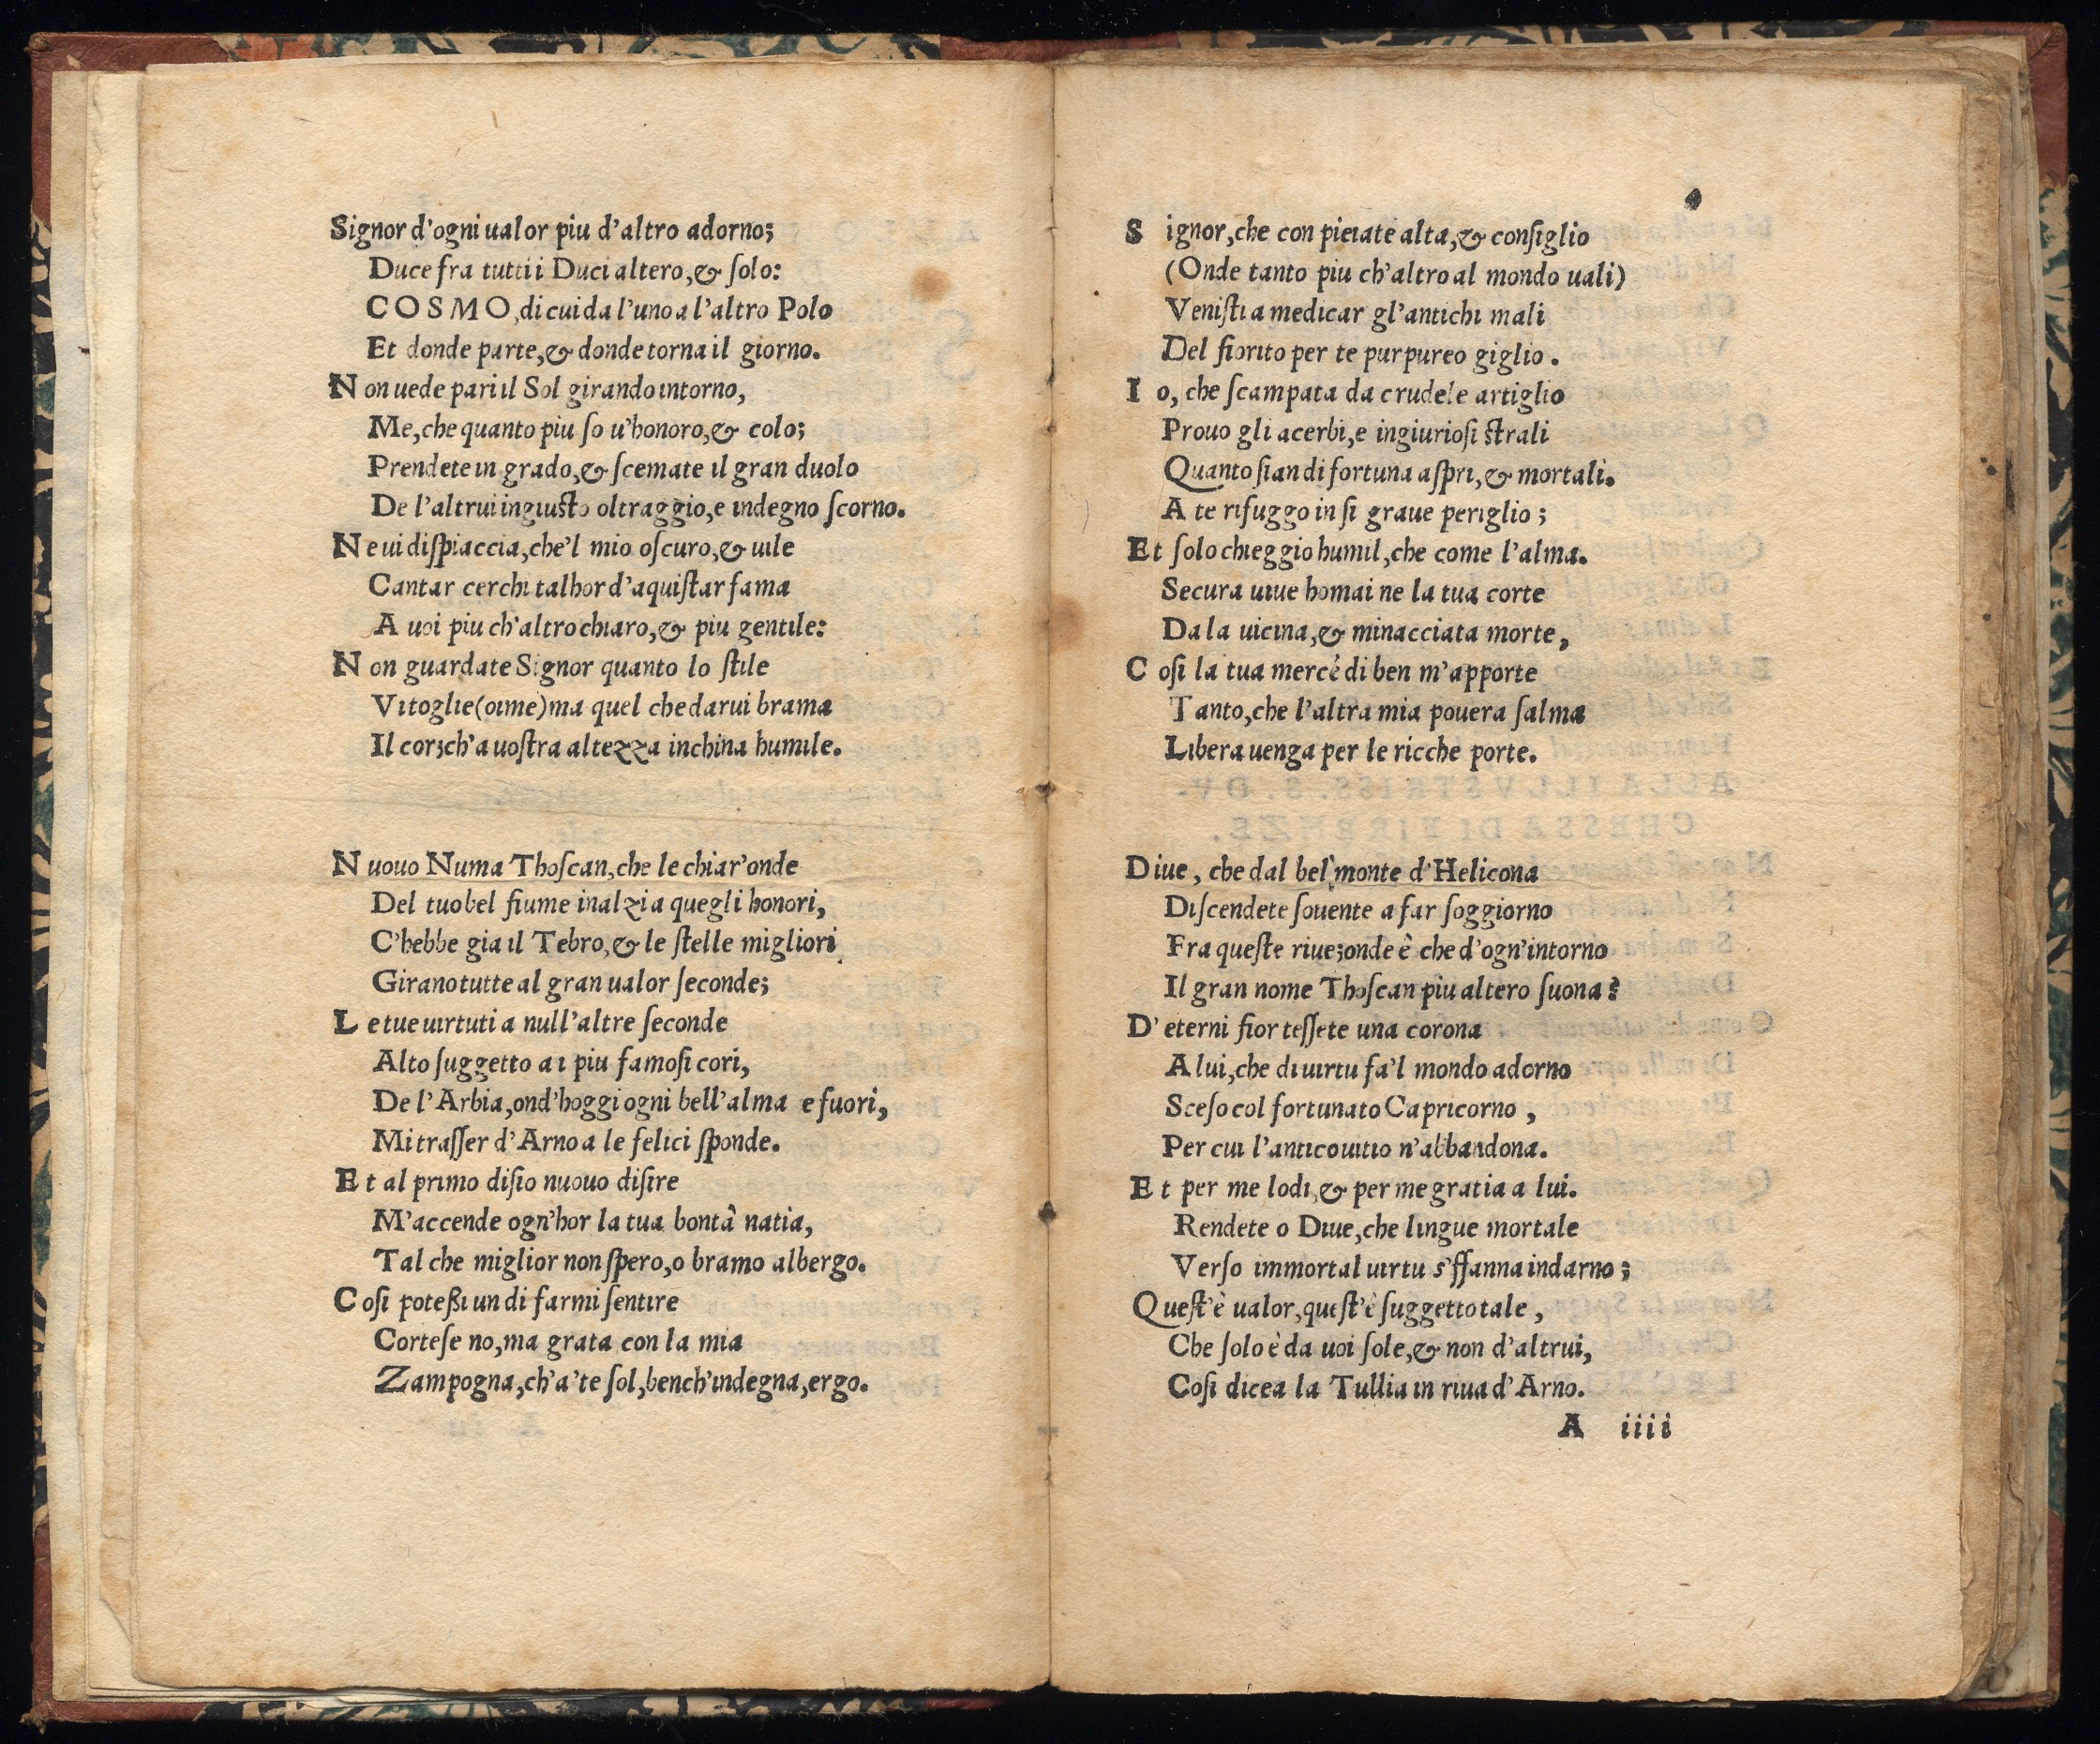 Signor d'ogni ualor piu d'altro adorno;
Duce fra tutti i Duci altero, & ſolo:
COSMO, di cui da l'uno a l'altro Polo
Et donde parte, & donde torna il giorno.
Non uede pari il Sol girando intorno,
Me, che quanto piu ſo u'honoro, & colo;
Prendete in grado, & ſcemate il gran duolo
De l'altrui ingiuſto oltraggio, e indegno ſcorno.
Ne ui diſpiaccia, che'l mio oſcuro, & uile
Cantar cerchi talhor d'aquiſtar fama
A uoi piu ch'altro chiaro, & piu gentile:
Non guardate Signor quanto lo ſtile
Vi toglie (oime) ma quel che darui brama
Il cor; ch'a uoſtra altezza inchina humile.
Nuouo Numa Thoſcan, che le chiar'onde
Del tuo bel fiume inalzi a quegli honori,
C'hebbe gia il Tebro, & le ſtelle migliori
Girano tutte al gran ualor ſeconde;
Le tue uirtuti a null'altre ſeconde
Alto ſuggetto a i piu famoſi cori,
De l'Arbia, ond'hoggi ogni bell'alma e fuori,
Mi traſſer d'Arno a le felici ſponde.
Et al primo diſio nuouo diſire
M'accende ogn'hor la tua bontâ natia,
Tal che miglior non ſpero, o bramo albergo.
Coſi poteßi un di farmi ſentire
Corteſe no, ma grata con la mia
Zampogna, ch'a'te ſol, bench'indegna, ergo.
Signor, che con pietate alta, & conſiglio
(Onde tanto piu ch'altro al mondo uali)
Veniſti a medicar gl'antichi mali
Del fiorito per te purpureo giglio.
Io, che ſcampata da crudele artiglio
Prouo gli acerbi, e ingiurioſi ſtrali
Quanto ſian di fortuna aſpri, & mortali.
A te rifuggo in ſi graue periglio;
Et ſolo chieggio humil, che come l'alma.
Secura uiue homai ne la tua corte
Da la uicina, & minacciata morte,
Coſi la tua mercè di ben m'apporte
Tanto, che l'altra mia pouera ſalma
Libera uenga per le ricche porte.
Diue, che dal bel monte d'Helicona
Diſcendete ſouente a far ſoggiorno
Fra queſte riue; onde è che d'ogn'intorno
Il gran nome Thoſcan piu altero ſuona?
D'eterni fior teſſete una corona
A lui, che di uirtu fa'l mondo adorno
Sceſo col fortunato Capricorno,
Per cui l'antico uitio n'abbandona.
Et per me lodi, & per me gratia a lui.
Rendete o Diue, che lingue mortale
Verſo immortal uirtu s'ffanna indarno;
Queſt'è ualor, queſt'è ſuggetto tale,
Che ſolo è da uoi ſole, & non d'altrui,
Coſi dicea la Tullia in riua d'Arno.
A iiii